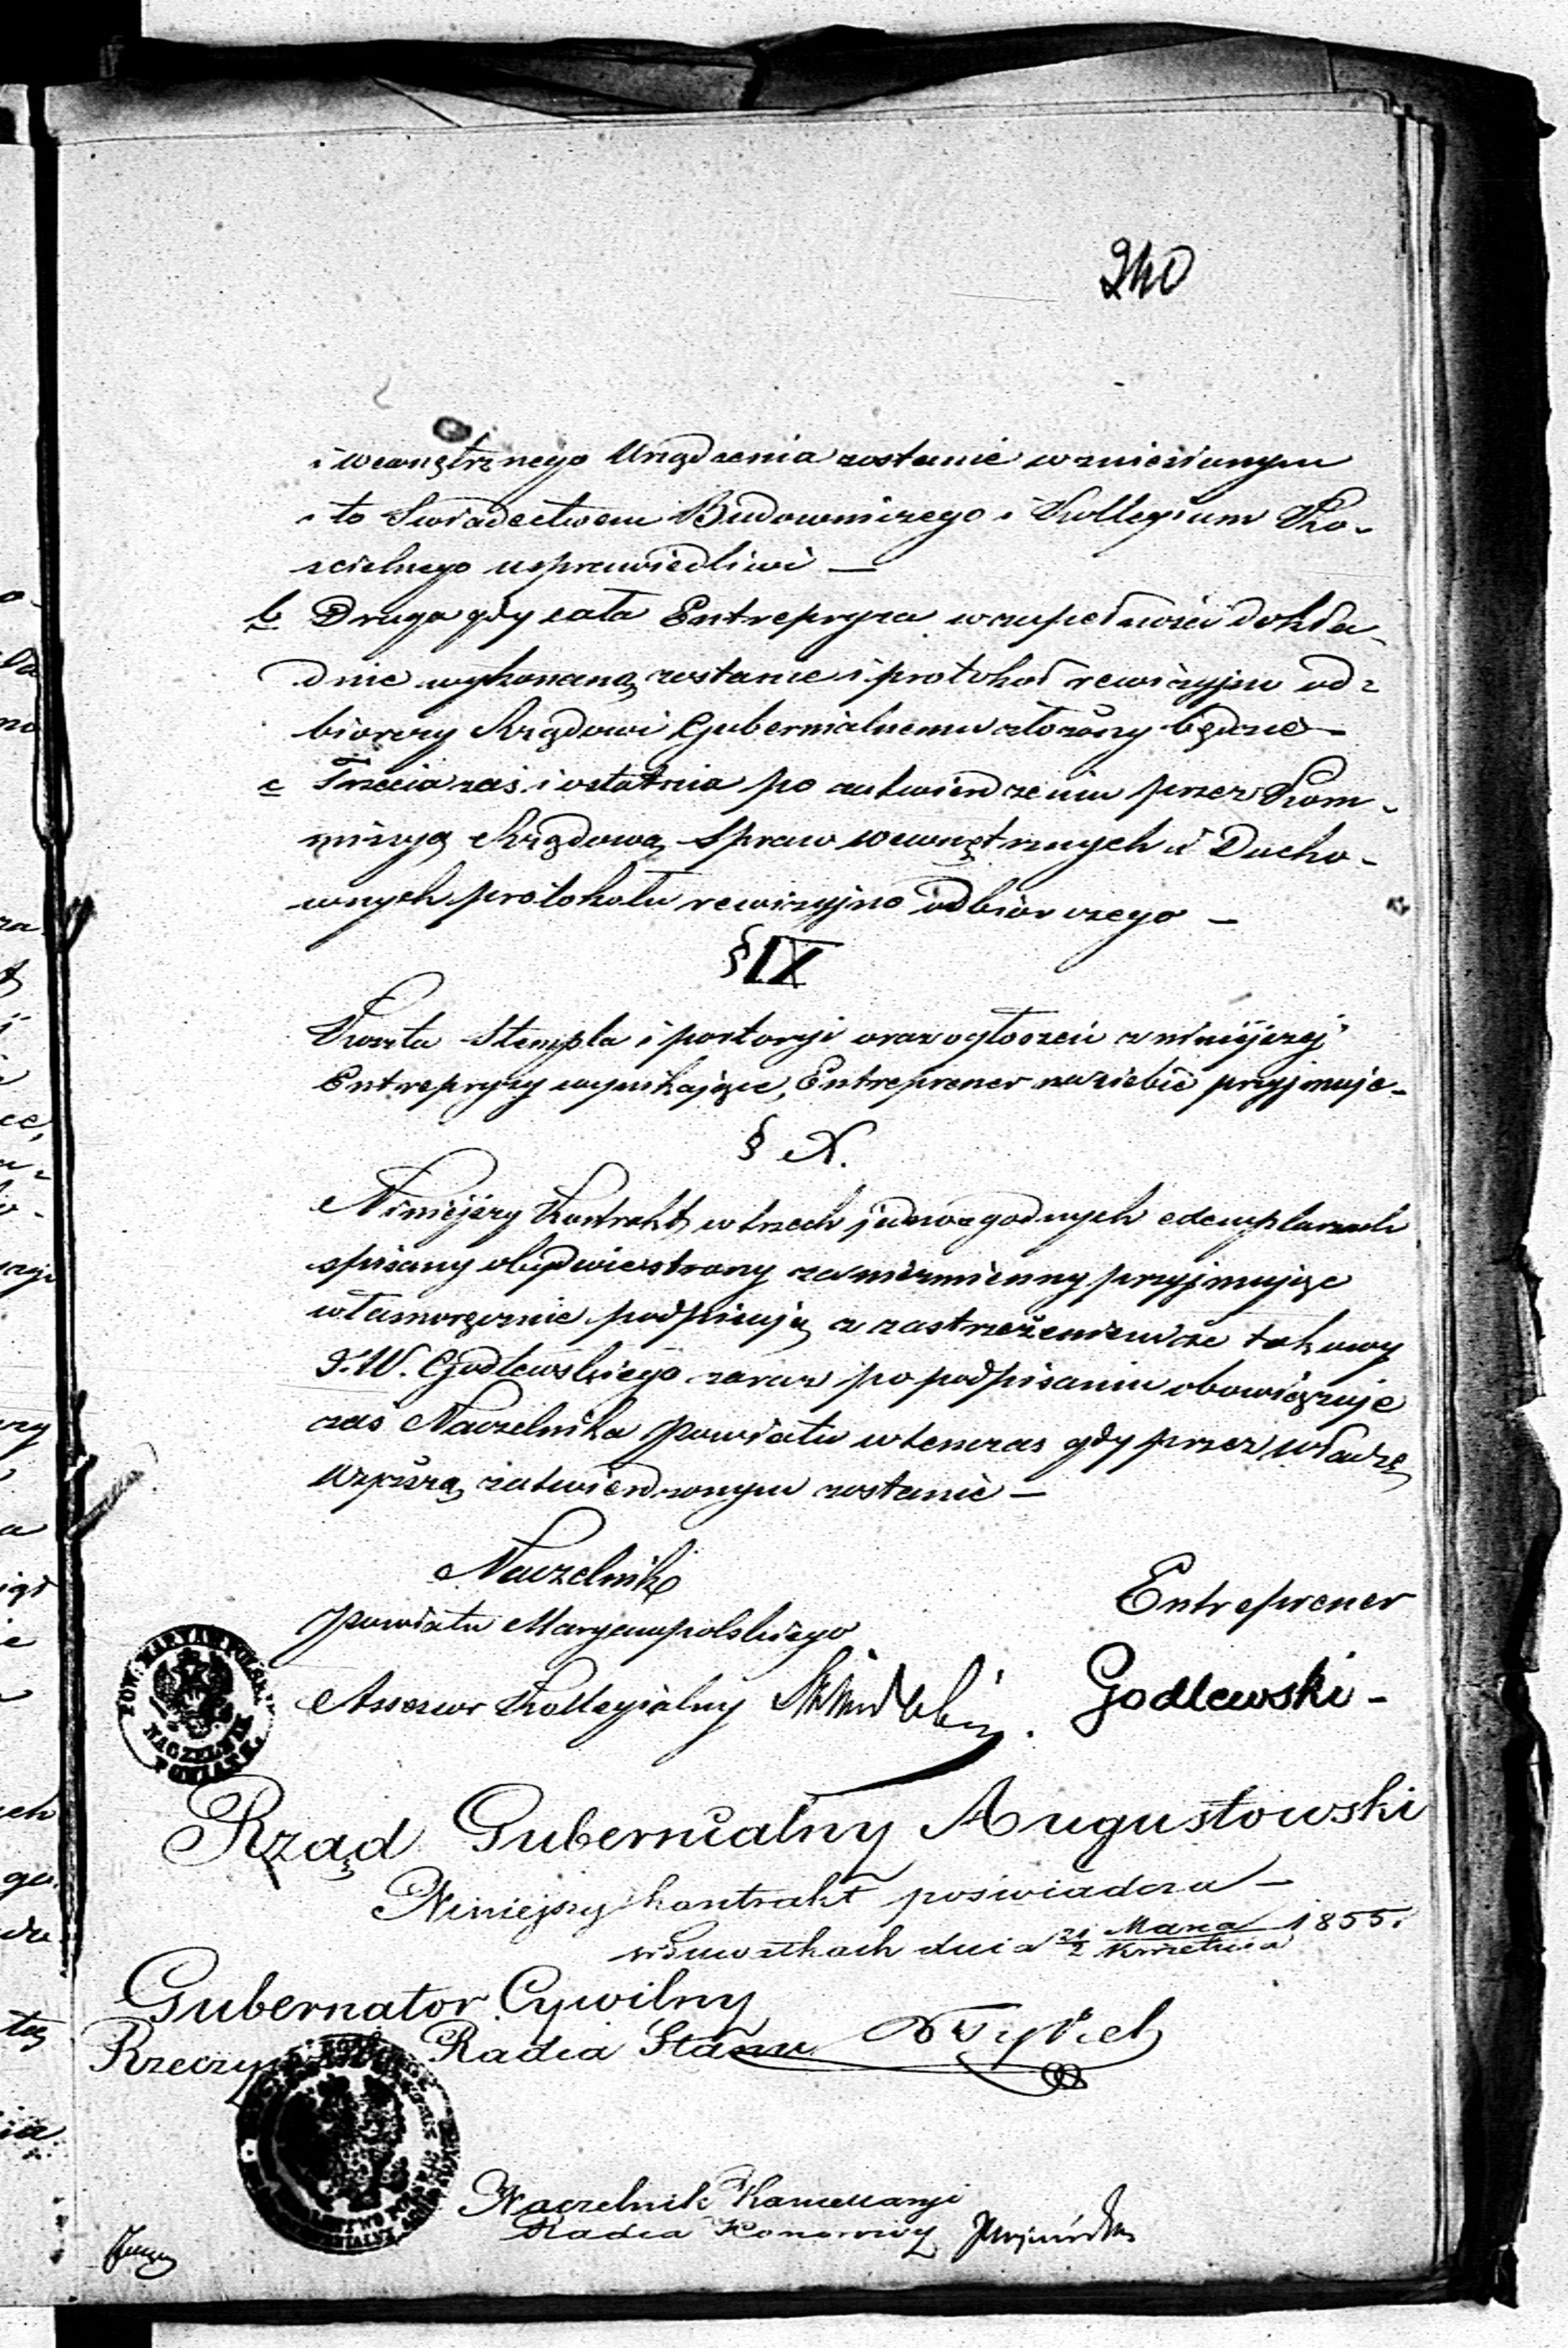 240
i wewnętrznego Urządzenia zostanie wzniesionym
i to Swiadectwem Budowniczego i Kollegium Ko-
scielnego usprawiedliwi —
b Druga gdy cała Entrepryza w zupełności dokła-
dnie wykonaną zostanie i protokoł rewizyjno od-
biorczy Rządowi Gubernialnemu złożony będzie —
c Trzecia zaś i ostatnia po zatwierdzeniu przez Kom-
missyą Rządową Spraw Wewnętrznych i Ducho-
wnych protokołu rewizyjno odbiorczego —
§ IX
Koszta Stempla i portoryi oraz ogłoszeń z niniejszej
Entrepryzy wynikające, Entreprener na siebie przyjmuje -
§ X.
Niniejszy Kontrakt w trzech jednozgodnych exemplarzach
spisany obydwie strony za niezmienny przyjmując
własnoręcznie podpisują z zastrzeżeniem że takowy
J.W. Godlewskiego zaraz po podpisaniu obowiązuje
zaś Naczelnika Powiatu wtenczas gdy przez Władzę
Wyższą zatwierdzonym zostanie —
Naczelnik
Powiatu Maryampolskiego
Entreprener
Assessor Kollegialny
Godlewski -
POW. MARYAMPOLSKI
NACZELNIK
POWIATU
Rząd Gubernialny Augustowski
Niniejszy kontrakt poświadcza —
w Suwałkach dnia 21/2 Marca/Kwietnia 1855 r
Gubernator Cywilny
Rzeczywisty Radca Stanu
Naczelnik Kancellaryi
Radca Honorowy